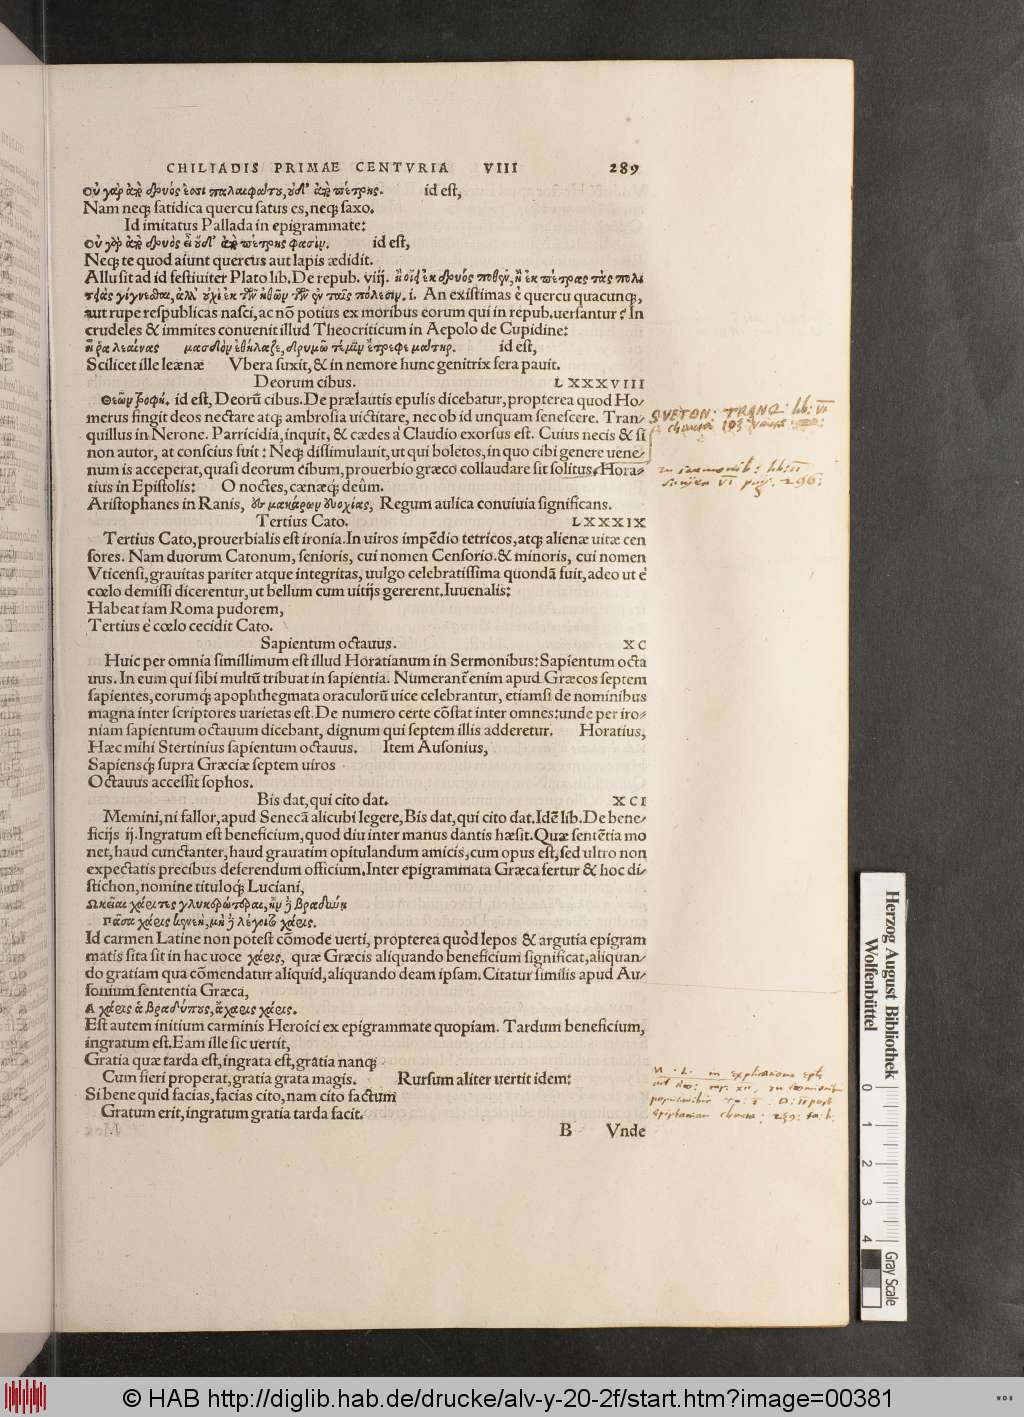 CHILIADIS PRIMAE CENTVRIA VIII 289
Οὐ γὰρ ἀπὸ δρυός ἐσσι παλαιφάτου, οὐδ' ἀπὸ πέτρης. id est,
Nam neqꝫ fatidica quercu satus es, neqꝫ saxo.
Id imitatus Pallada in epigrammate:
Οὐ γὰρ ἀπὸ δρυὸς εἶ οὐδ' ἀπὸ πέτρης φασίν. id est,
Neqꝫ te quod aiunt quercus aut lapis ædidit.
Allusit ad id festiuiter Plato lib. De repub. viij. ἢ οἴει ἐκ δρυός ποθεν, ἢ ἐκ πέτρας τὰς πολι
τείας γίγνεσθαι, ἀλλ' οὐχὶ ἐκ τῶν ἠθῶν τῶν ἐν ταῖς πόλεσιν. i. An existimas è quercu quacunqꝫ,
aut rupe respublicas nasci, ac nō potius ex moribus eorum qui in repub. uersantur? In
crudeles & immites conuenit illud Theocriticum in Aepolo de Cupidine:
ἦ ῥα λεαίνας μασδὸν ἐθήλαζε, δρυμῶ τέ μιν ἔτρεφε μάτηρ. id est,
Scilicet ille leænæ Vbera suxit, & in nemore hunc genitrix fera pauit.
Deorum cibus. LXXXVIII
Θεῶν τροφή. id est, Deorū cibus. De prælautis epulis dicebatur, propterea quod Ho-
merus fingit deos nectare atqꝫ ambrosia uictitare, nec ob id unquam senescere. Tran-
quillus in Nerone. Parricidia, inquit, & cædes à Claudio exorsus est. Cuius necis & si
non autor, at conscius fuit: Neqꝫ dissimulauit, ut qui boletos, in quo cibi genere uene-
num is acceperat, quasi deorum cibum, prouerbio græco collaudare sit solitus. Hora-
tius in Epistolis: O noctes, cænæqꝫ deûm.
Aristophanes in Ranis, ἐς μακάρων εὐωχίας, Regum aulica conuiuia significans.
Tertius Cato. LXXXIX
Tertius Cato, prouerbialis est ironia. In uiros impēdio tetricos, atqꝫ alienæ uitæ cen
sores. Nam duorum Catonum, senioris, cui nomen Censorio. & minoris, cui nomen
Vticensi, grauitas pariter atque integritas, uulgo celebratissima quondā fuit, adeo ut è
cœlo demissi dicerentur, ut bellum cum uitijs gererent. Iuuenalis:
Habeat iam Roma pudorem,
Tertius è cœlo cecidit Cato.
Sapientum octauus. XC
Huic per omnia simillimum est illud Horatianum in Sermonibus: Sapientum octa
uus. In eum qui sibi multū tribuat in sapientia. Numerant̃ enim apud Græcos septem
sapientes, eorumqꝫ apophthegmata oraculorū uice celebrantur, etiamsi de nominibus
magna inter scriptores uarietas est. De numero certe cōstat inter omnes: unde per iro-
niam sapientum octauum dicebant, dignum qui septem illis adderetur. Horatius,
Hæc mihi Stertinius sapientum octauus. Item Ausonius,
Sapiensqꝫ supra Græciæ septem uiros
Octauus accessit sophos.
Bis dat, qui cito dat. XCI
Memini, ni fallor, apud Senecā alicubi legere, Bis dat, qui cito dat. Idē lib. De bene-
ficijs ij. Ingratum est beneficium, quod diu inter manus dantis hæsit. Quæ sentētia mo
net, haud cunctanter, haud grauatim opitulandum amicis, cum opus est, sed ultro non
expectatis precibus deferendum officium. Inter epigrammata Græca fertur & hoc di-
stichon, nomine tituloqꝫ Luciani,
Ωκεῖαι χάριτες γλυκερώτεραι, ἢν δὲ βραδύνῃ
Πᾶσα χάρις κενεὴ, μὴ δὲ λέγοιτο χάρις.
Id carmen Latine non potest cōmode uerti, propterea quòd lepos & argutia epigram
matis sita sit in hac uoce χάρις, quæ Græcis aliquando beneficium significat, aliquan-
do gratiam qua cōmendatur aliquid, aliquando deam ipsam. Citatur similis apud Au-
sonium sententia Græca,
Α χάρις ἁ βραδύπους, ἄχαρις χάρις.
Est autem initium carminis Heroici ex epigrammate quopiam. Tardum beneficium,
ingratum est. Eam ille sic uertit,
Gratia quæ tarda est, ingrata est, gratia nanqꝫ
Cum fieri properat, gratia grata magis. Rursum aliter uertit idem:
Si bene quid facias, facias cito, nam cito factum
Gratum erit, ingratum gratia tarda facit.
B Vnde
SVETON. TRANQ. lib: VI
in sermonib: lib: II
VI pag. 296:
in explicatione
Herzog August Bibliothek
Wolfenbüttel
0 1 2 3 4
Gray Scale
© HAB http://diglib.hab.de/drucke/alv-y-20-2f/start.htm?image=00381